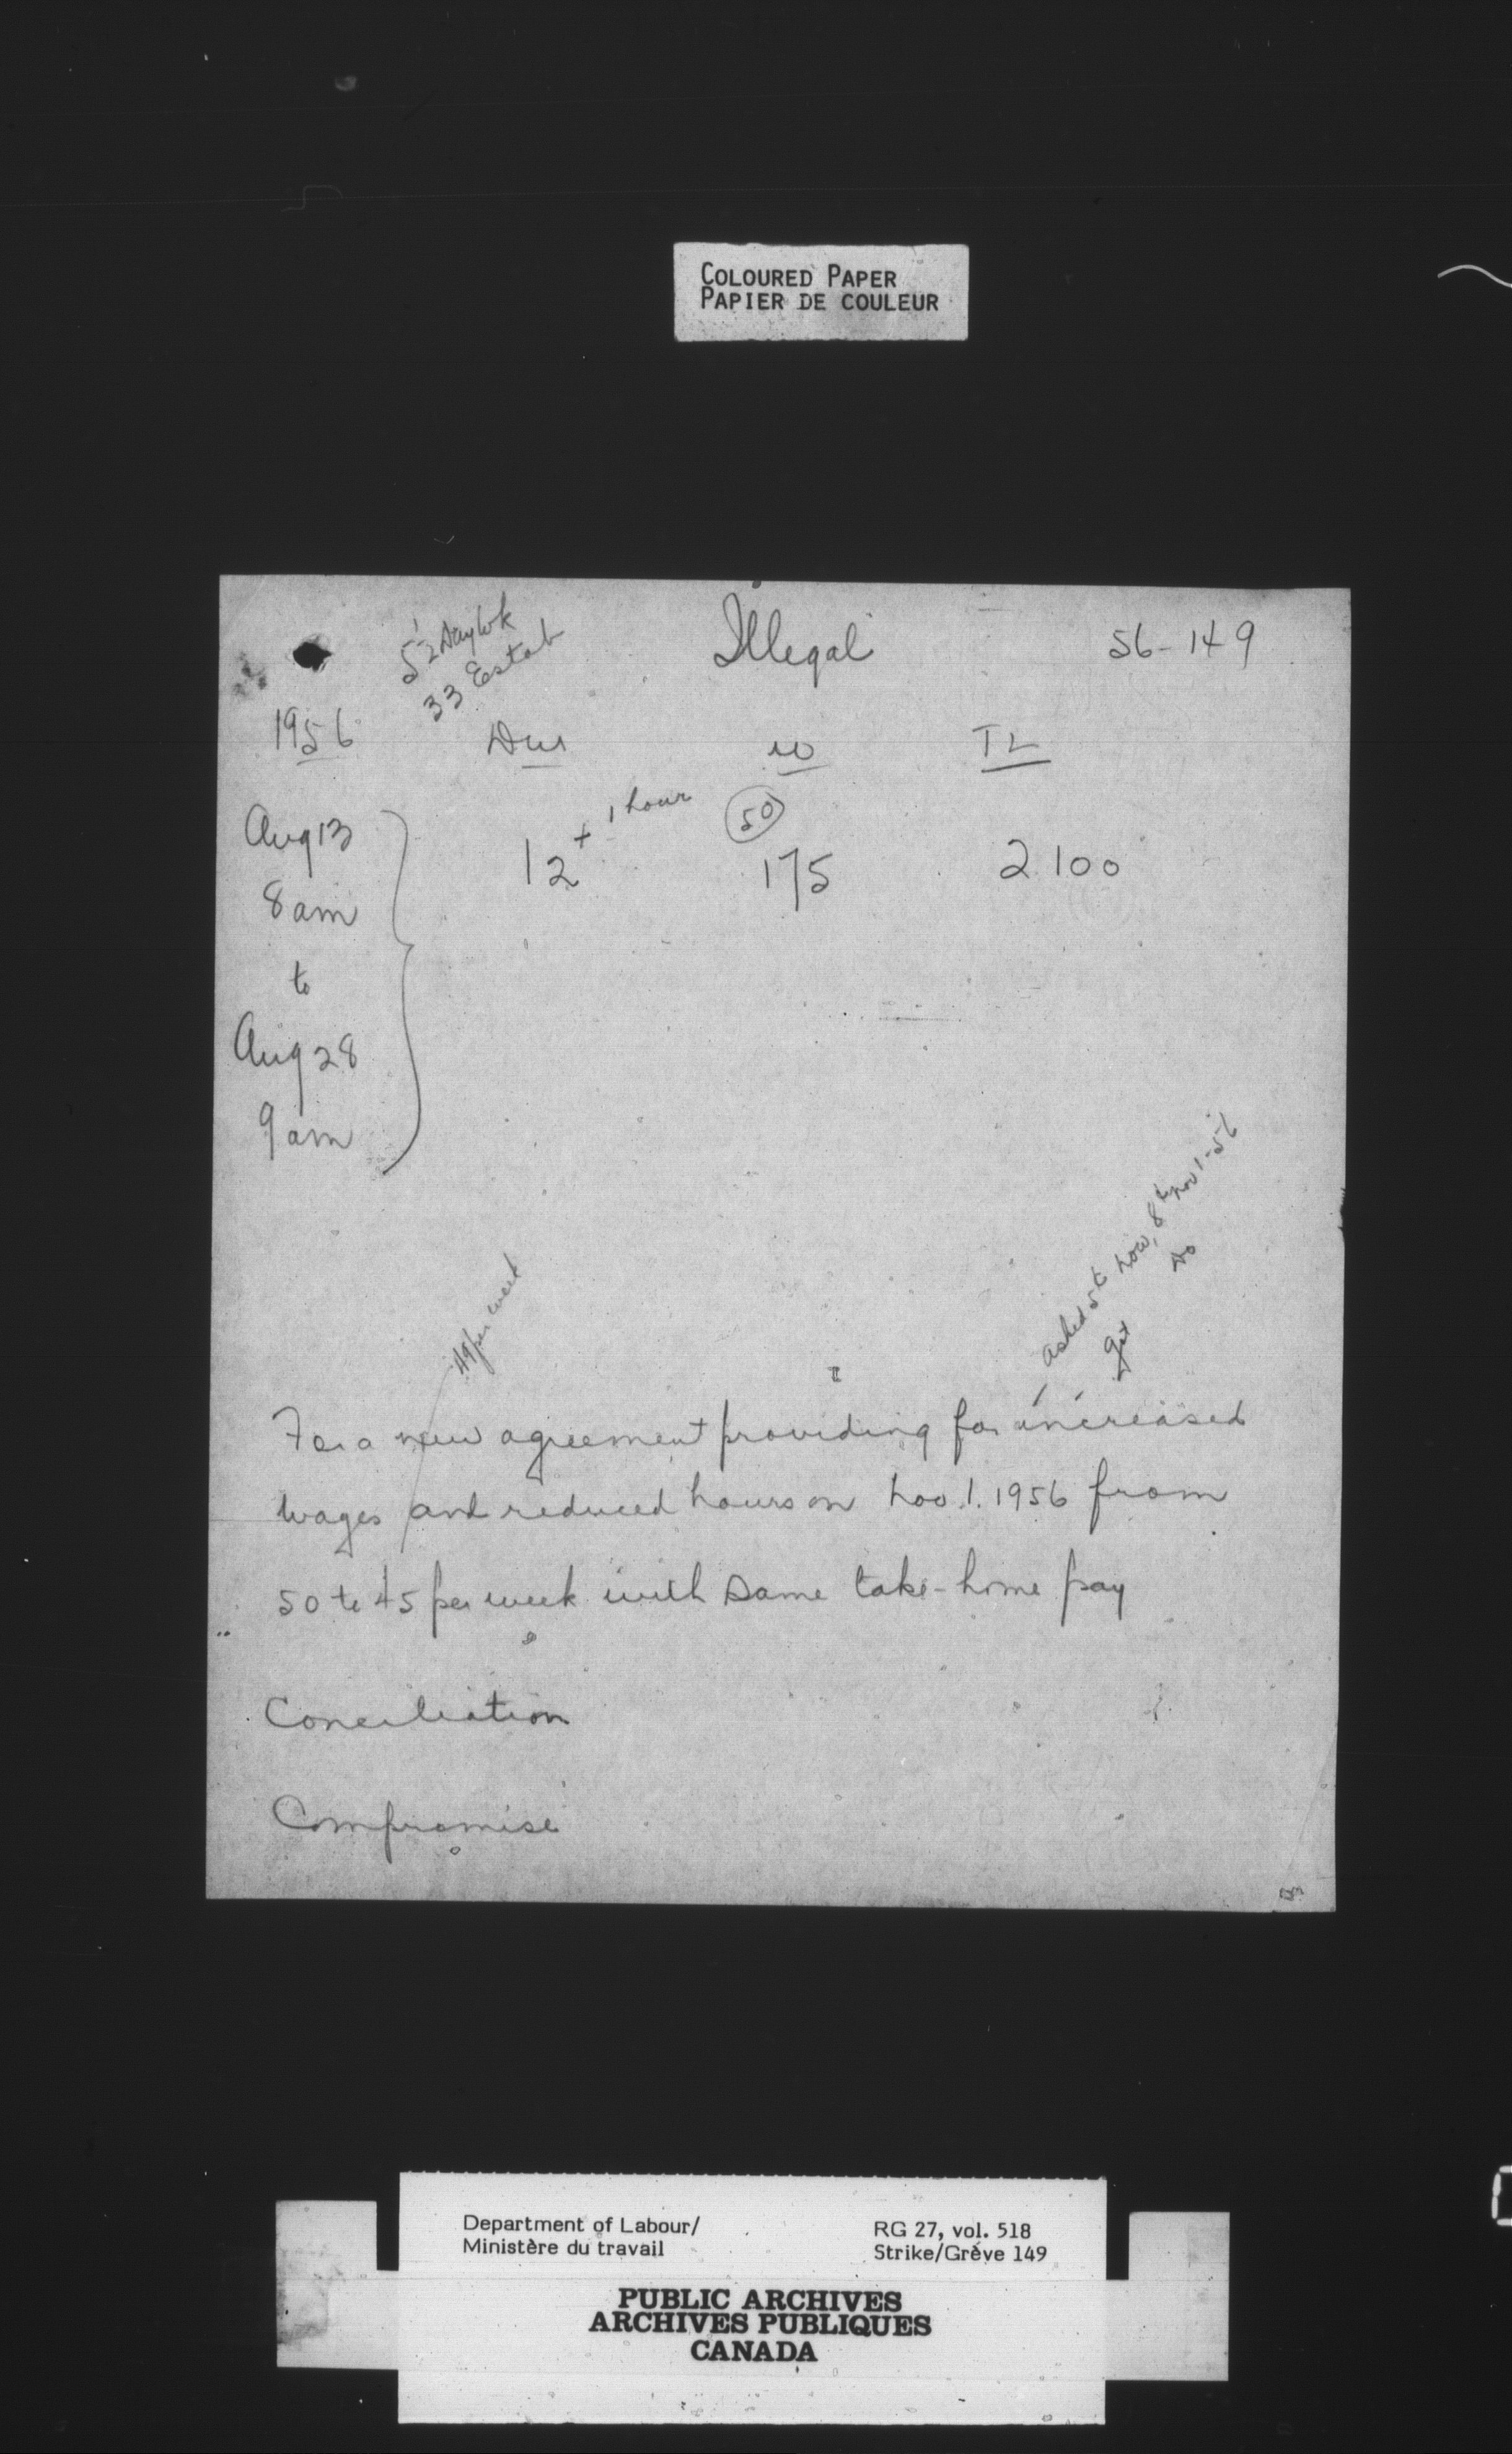 COLOURED PAPER
PAPIER DE COULEUR
5½ Day Wk
33 Estab
Illegal
56-149
1956
Dur
W
TL
Aug 13
8 am
to
Aug 28
9 am
12 + 1 hour
50
175
2100
per week
asked 5¢ now, 8¢ Nov 1-56
got Do
For a new agreement providing for increased
wages and reduced hours on Nov. 1. 1956 from
50 to 45 per week with same take-home pay
Conciliation
Compromise
Department of Labour/
Ministère du travail
RG 27, vol. 518
Strike/Grève 149
PUBLIC ARCHIVES
ARCHIVES PUBLIQUES
CANADA